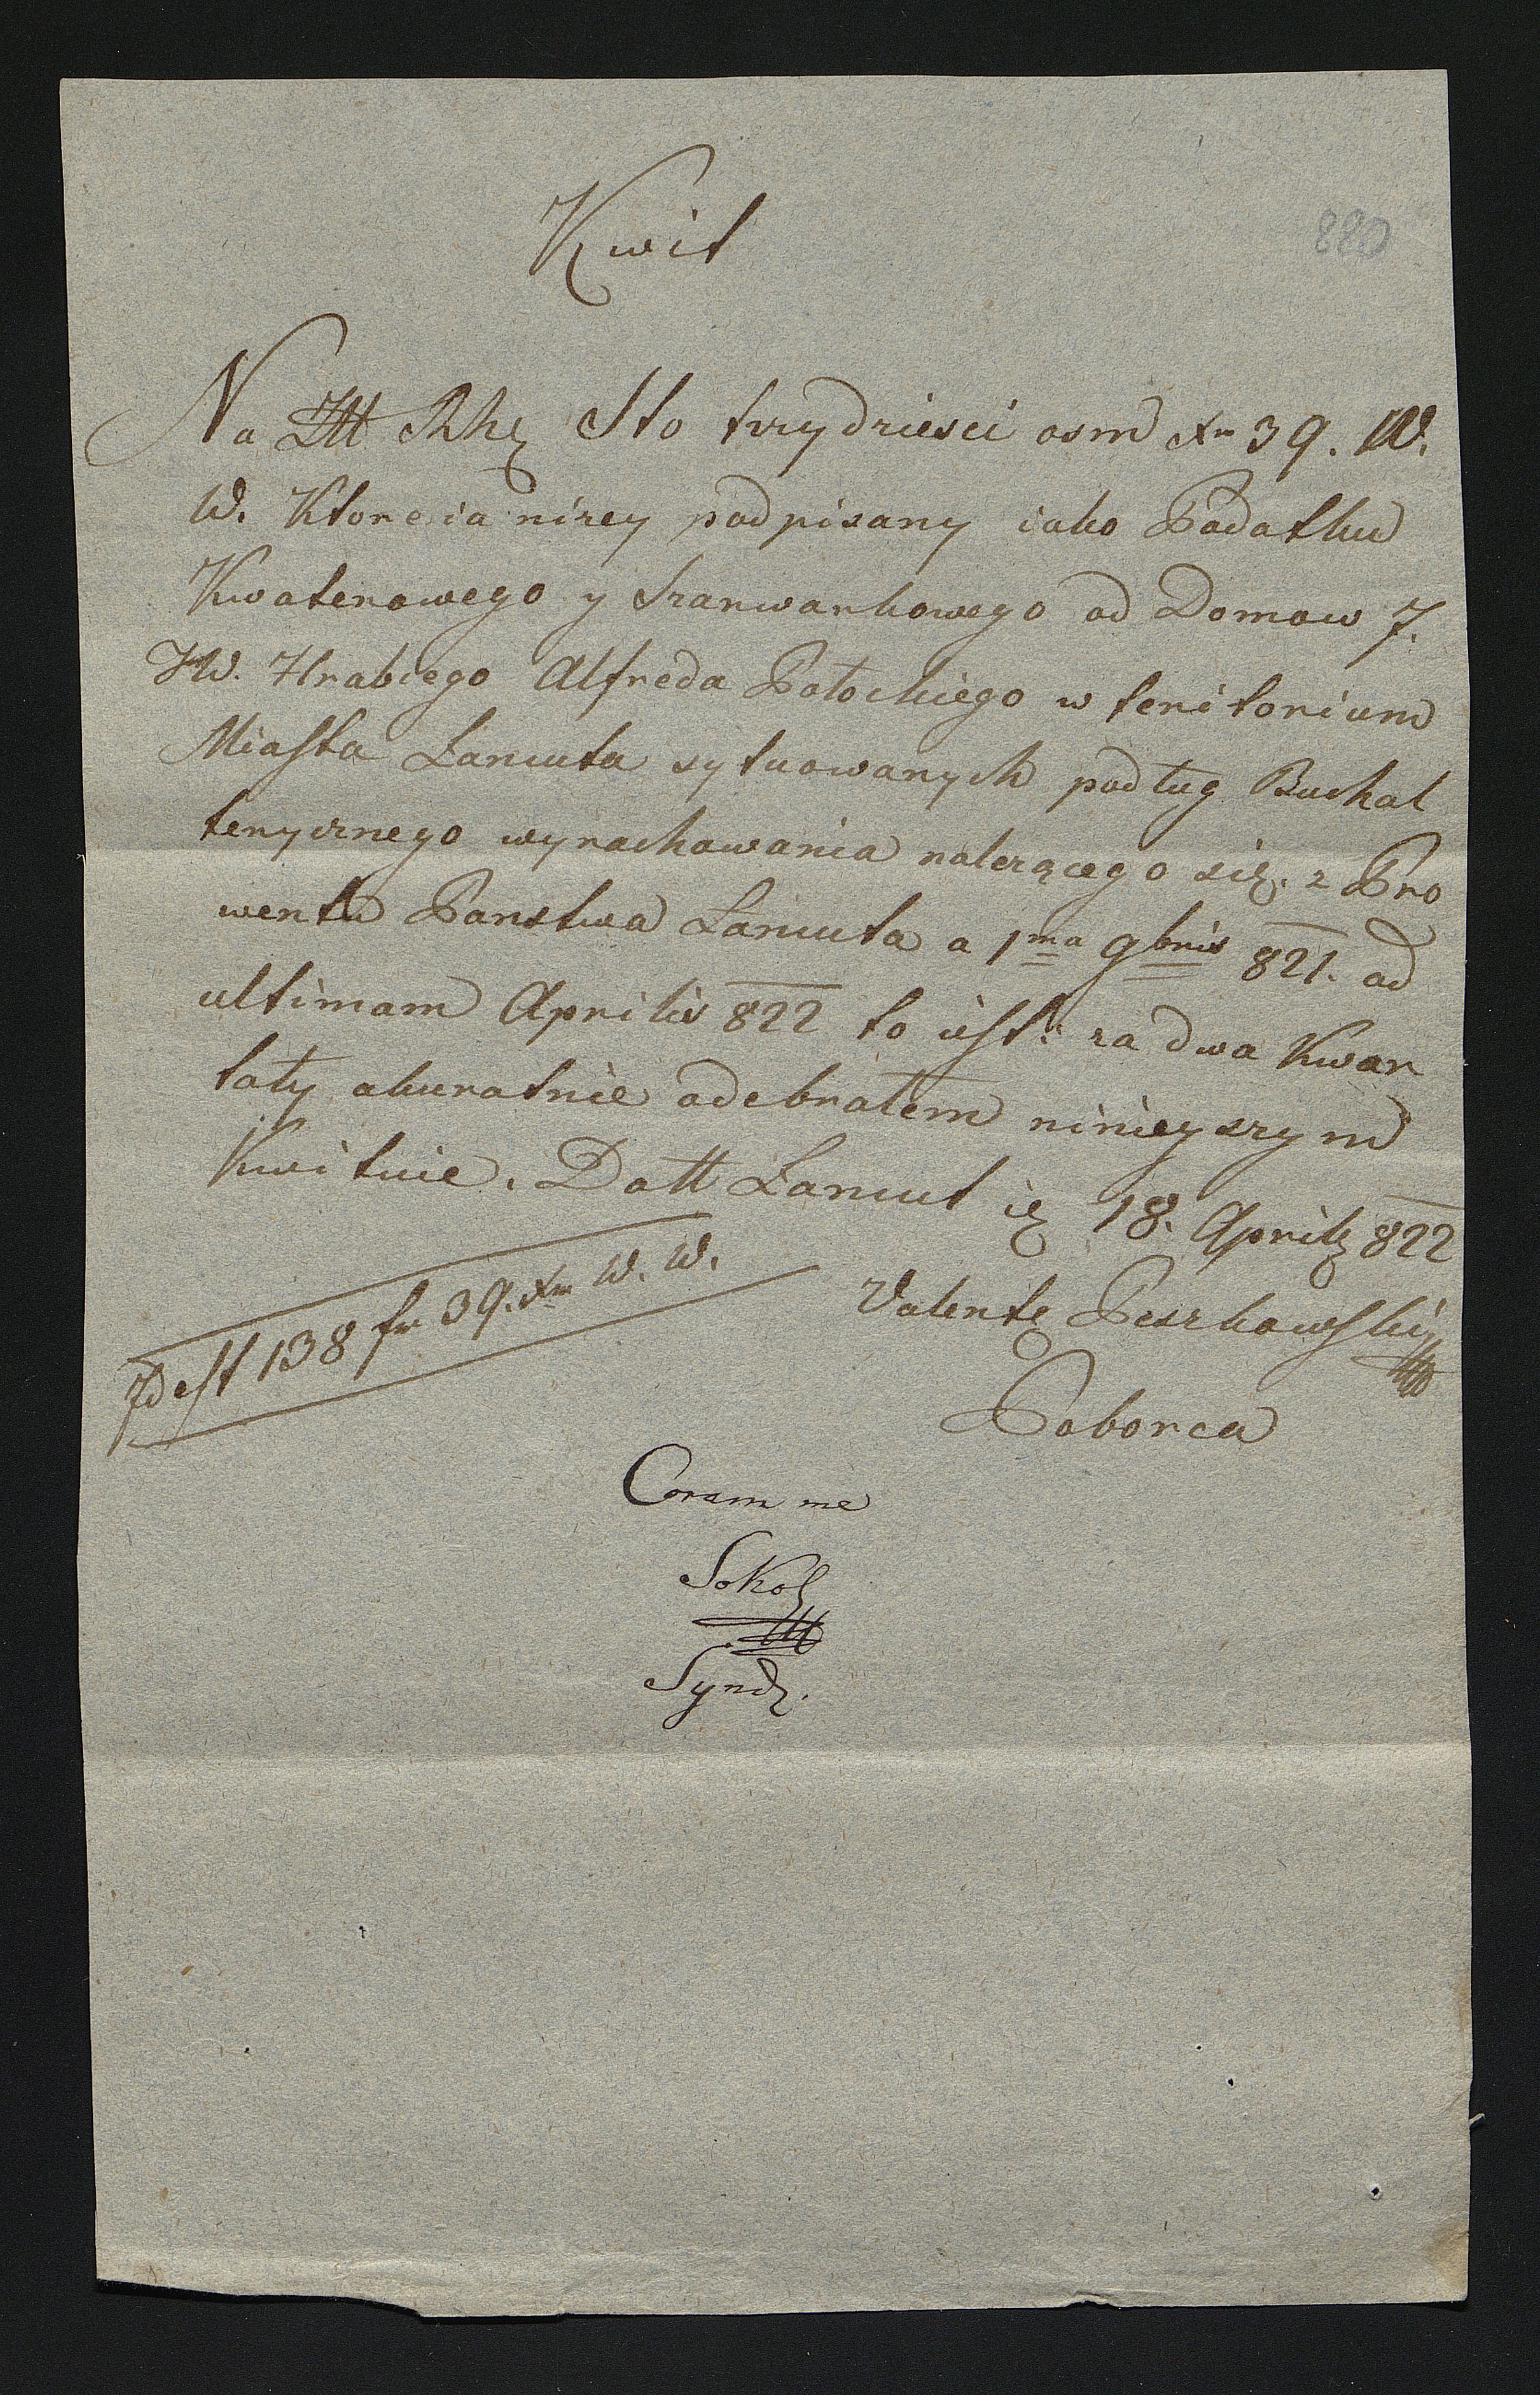 Kwit
880
Na Złt Rhę Sto trzydziesci osm Xr 39. W.
W. Ktore ia nizey podpisany iako Podatku
Kwaterowego y Szarwarkowego od Domow J.
JW. Hrabiego Alfreda Potockiego w teritorium
Miasta Lancuta sytuowanych podług Buchal
terycznego wyrachowania nalezącego się. z Pro
wentu Panstwa Lancuta a 1ma 9bris 821. ad
ultimam Aprilis 822 to iest: za dwa Kwar
tały akuratnie odebrałem ninieyszym
Kwituie. Datt Lancut 18. Aprilę 822
Id est 138 fr 39. Xr W. W.
Valentę Peszkowski
Poborca
Coram me
Sokol
Synd.